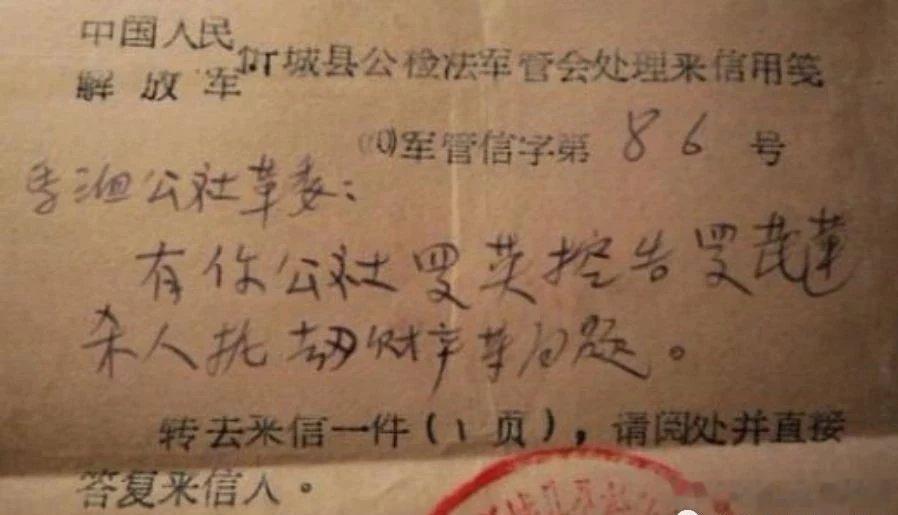 中国人民
解放军
城县公检法军管会处理来信用笺
军管信字第 86 号
公社革委:
有你公社罗英控告罗茂莲
杀人抢劫财等问题。
转去来信一件(1页),请阅处并直接
答复来信人。